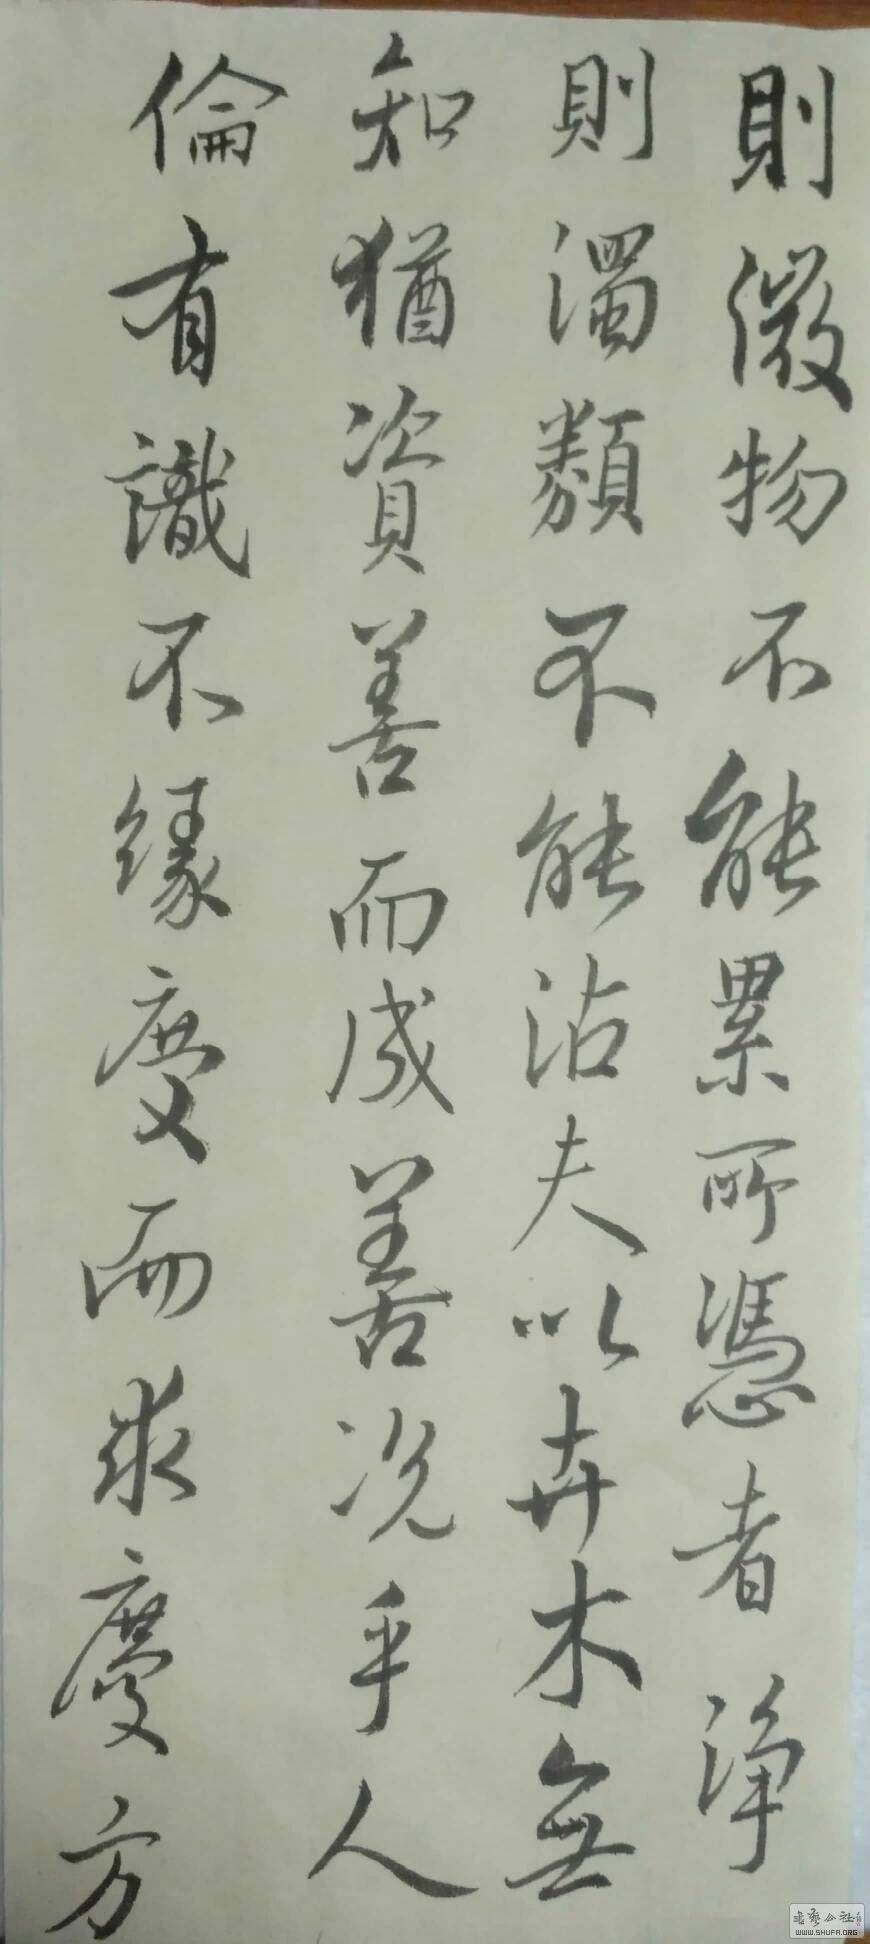 則微物不能累所憑者淨
則濁類不能沾夫以卉木無
知猶資善而成善况乎人
倫有識不緣慶而求慶方
书艺公社
WWW.SHUFA.ORG